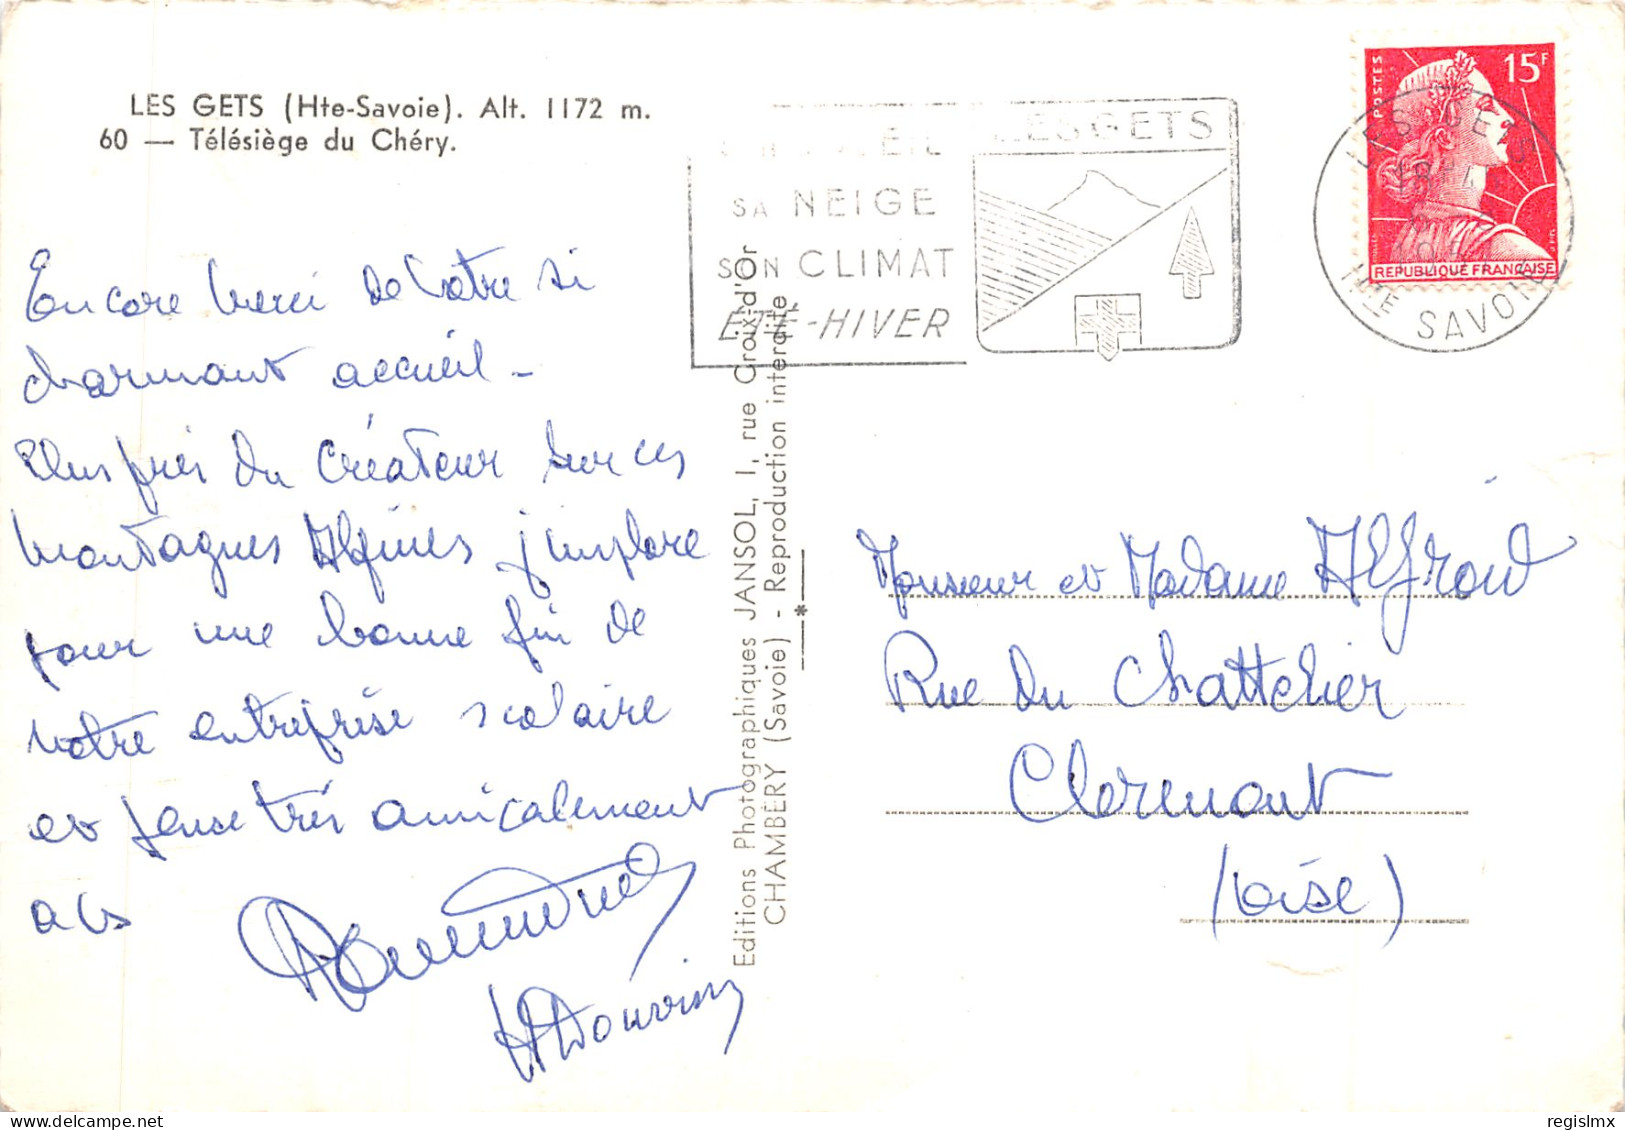 LES GETS (Hte-Savoie). Alt. 1172 m.
60 — Télésiège du Chéry.
Encore merci de votre si
charmant accueil -
Plus près du Créateur sur ces
montagnes Alpines j'implore
pour une bonne fin de
votre entreprise scolaire
et pense très amicalement
à Vs
Editions Photographiques JANSOL, 1, rue Croix-d'Or
CHAMBÉRY (Savoie) - Reproduction interdite
LES GETS
SA NEIGE
SON CLIMAT
ETE-HIVER
POSTES
15F
REPUBLIQUE FRANÇAISE
LES GETS
HTE SAVOIE
Monsieur et Madame
Rue du Chattelier
Clermont
(Oise)
regislmx